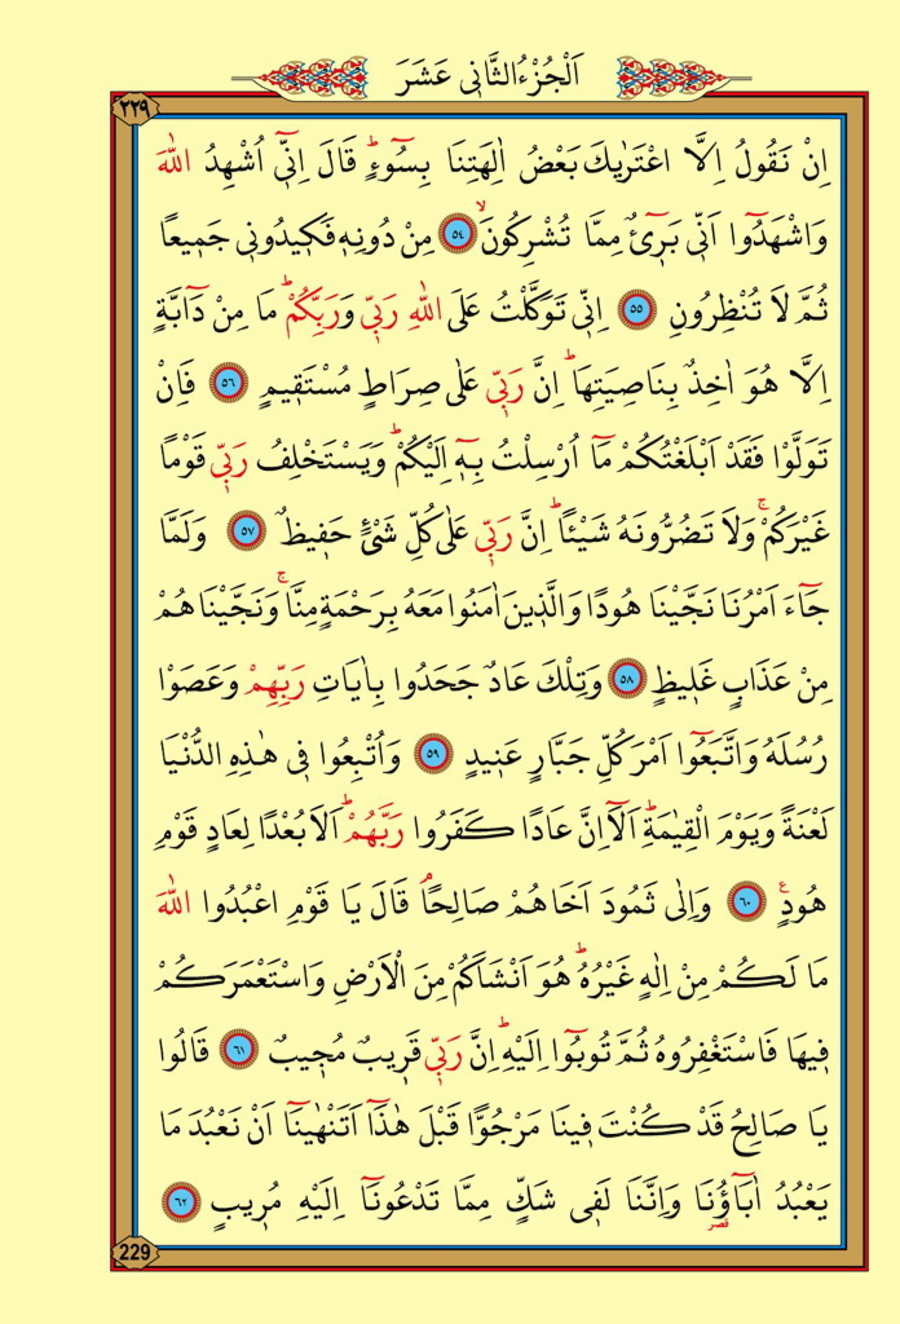 اَلْجُزْءُ الثَّانِى عَشَرَ
٢٢٩
اِنْ نَقُولُ اِلَّا اعْتَرٰيكَ بَعْضُ اٰلِهَتِنَا بِسُٓوءٍۜ قَالَ اِنّ۪ٓي اُشْهِدُ اللّٰهَ
وَاشْهَدُٓوا اَنّ۪ي بَر۪ٓيءٌ مِمَّا تُشْرِكُونَۙ ﴿٥٤﴾ مِنْ دُونِه۪ فَك۪يدُون۪ي جَم۪يعًا
ثُمَّ لَا تُنْظِرُونِ ﴿٥٥﴾ اِنّ۪ي تَوَكَّلْتُ عَلَى اللّٰهِ رَبّ۪ي وَرَبِّكُمْۜ مَا مِنْ دَٓابَّةٍ
اِلَّا هُوَ اٰخِذٌ بِنَاصِيَتِهَاۜ اِنَّ رَبّ۪ي عَلٰى صِرَاطٍ مُسْتَق۪يمٍ ﴿٥٦﴾ فَاِنْ
تَوَلَّوْا فَقَدْ اَبْلَغْتُكُمْ مَٓا اُرْسِلْتُ بِه۪ٓ اِلَيْكُمْۜ وَيَسْتَخْلِفُ رَبّ۪ي قَوْمًا
غَيْرَكُمْۚ وَلَا تَضُرُّونَهُ شَيْـًٔاۜ اِنَّ رَبّ۪ي عَلٰى كُلِّ شَيْءٍ حَف۪يظٌ ﴿٥٧﴾ وَلَمَّا
جَٓاءَ اَمْرُنَا نَجَّيْنَا هُودًا وَالَّذ۪ينَ اٰمَنُوا مَعَهُ بِرَحْمَةٍ مِنَّاۚ وَنَجَّيْنَاهُمْ
مِنْ عَذَابٍ غَل۪يظٍ ﴿٥٨﴾ وَتِلْكَ عَادٌ جَحَدُوا بِاٰيَاتِ رَبِّهِمْ وَعَصَوْا
رُسُلَهُ وَاتَّبَعُٓوا اَمْرَ كُلِّ جَبَّارٍ عَن۪يدٍ ﴿٥٩﴾ وَاُتْبِعُوا ف۪ي هٰذِهِ الدُّنْيَا
لَعْنَةً وَيَوْمَ الْقِيٰمَةِۜ اَلَٓا اِنَّ عَادًا كَفَرُوا رَبَّهُمْۜ اَلَا بُعْدًا لِعَادٍ قَوْمِ
هُودٍ۟ ﴿٦٠﴾ وَاِلٰى ثَمُودَ اَخَاهُمْ صَالِحًاۢ قَالَ يَا قَوْمِ اعْبُدُوا اللّٰهَ
مَا لَكُمْ مِنْ اِلٰهٍ غَيْرُهُۜ هُوَ اَنْشَاَكُمْ مِنَ الْاَرْضِ وَاسْتَعْمَرَكُمْ
ف۪يهَا فَاسْتَغْفِرُوهُ ثُمَّ تُوبُٓوا اِلَيْهِۜ اِنَّ رَبّ۪ي قَر۪يبٌ مُج۪يبٌ ﴿٦١﴾ قَالُوا
يَا صَالِحُ قَدْ كُنْتَ ف۪ينَا مَرْجُوًّا قَبْلَ هٰذَٓا اَتَنْهٰينَٓا اَنْ نَعْبُدَ مَا
يَعْبُدُ اٰبَٓاؤُ۬نَا وَاِنَّنَا لَف۪ي شَكٍّ مِمَّا تَدْعُونَٓا اِلَيْهِ مُر۪يبٍ ﴿٦٢﴾
قصر
229